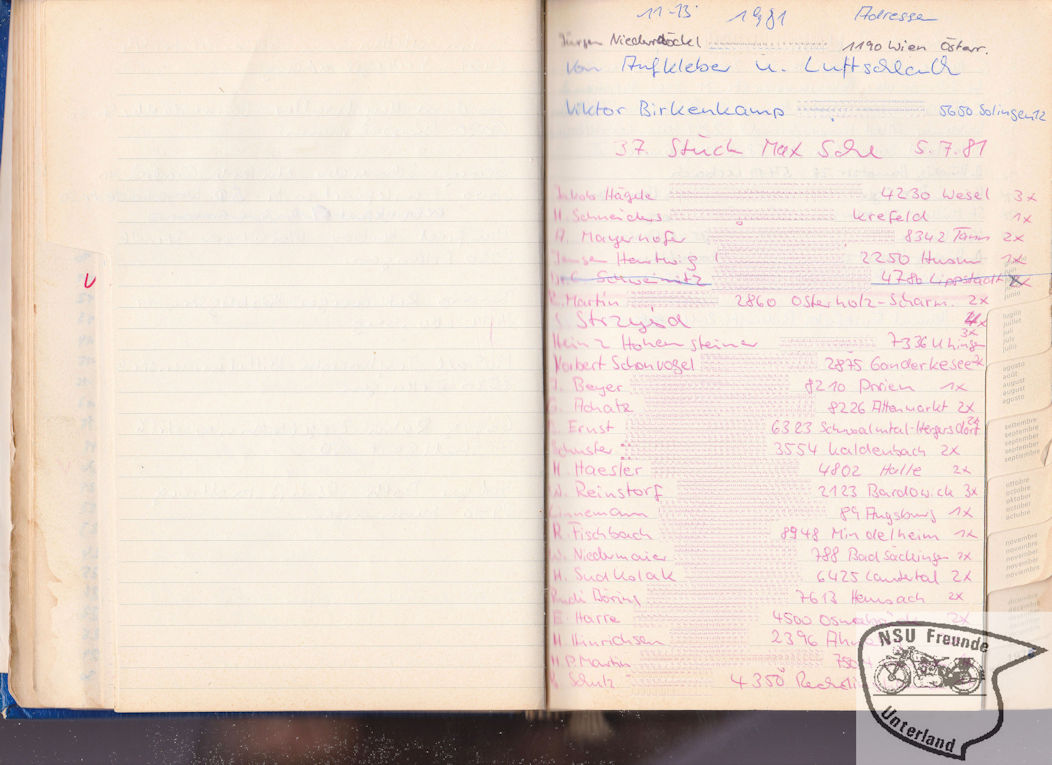 11-13 1981 Adresse
Jürgen Niederböckl 1190 Wien Österr.
von Aufkleber u. Luftschlauch
Viktor Birkenkamp 5650 Solingen 12
37. Stück Max Sche 5.7.81
Jakob Hägele 4230 Wesel 3x
H. Schneiders Krefeld 1x
A. Mayerhofer 8342 Tann 2x
Jensen Hentwig 2250 Husum 1x
Schweinitz 4780 Lippstadt 2x
R. Martin 2860 Osterholz-Scharm. 2x
S. Strzysd 4x
Heinz Hohensteiner 7336 Uhingen 3x
Norbert Schönvogel 2875 Ganderkesee 2x
J. Beyer 8210 Prien 1x
G. Achatz 8226 Altenmarkt 2x
Ernst 6323 Schwalmtal-Hergersdorf 2x
Schuster 3554 Kaldenbach 2x
H. Haesler 4802 Halle 2x
W. Reinstorf 2123 Bardowick 3x
Linnemann 89 Augsburg 1x
R. Fischbach 8948 Mindelheim 1x
W. Niedermaier 788 Bad Säckingen 2x
H. Sudkolak 6425 Lautertal 2x
Rudi Döring 7613 Hausach 2x
E. Harre 4500 Osnabrück 2x
H. Hinrichsen 2396
H.P. Martin 750
Schulz 4350 Reckli
luglio
juillet
juli
july
julio
agosto
août
august
august
agosto
settembre
septembre
september
september
septiembre
ottobre
octobre
oktober
october
octubre
novembre
novembre
november
november
noviembre
NSU Freunde
Unterland